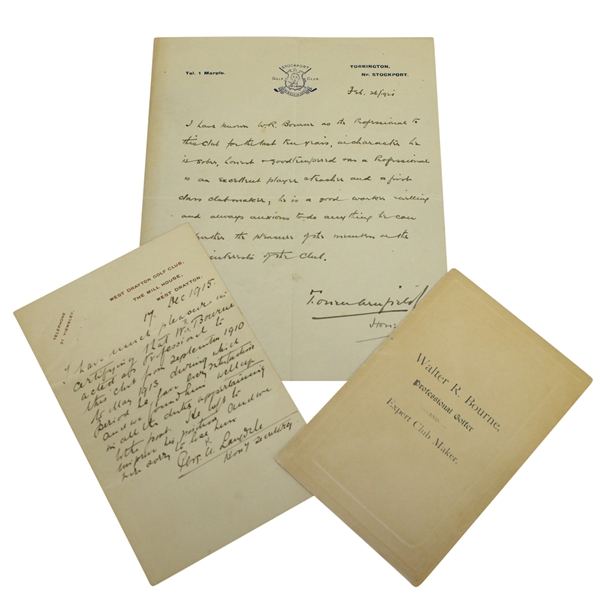 Tel. 1 Marple.
STOCKPORT
GOLF CLUB.
TORKINGTON,
Nr. STOCKPORT.
Feb. 26/1921
I have known W.R. Bourne as the Professional to
this Club for the last two years, in character he
is sober, honest & good tempered & as a Professional
is an excellent player & teacher and a first
class clubmaker, he is a good worker willing
and always anxious to do anything he can
further the pleasure of the members or the
interests of the Club.
TELEPHONE
WEST DRAYTON GOLF CLUB,
THE MILL HOUSE,
WEST DRAYTON.
17 Dec 1915.
I have much pleasure in
certifying that W. Bourne
acted as Professional to
this club from September 1910
to May 1913 during which
period he gave every satisfaction
and we found him well up
in all the duties appertaining
to the post. He left to
improve his position and we
were sorry to lose him
Hony Secretary
Walter R. Bourne,
Professional Golfer
AND
Expert Club Maker.